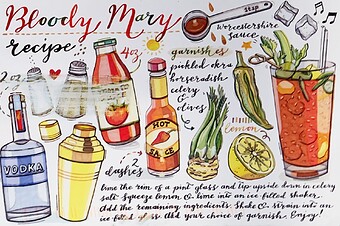 Bloody Mary
recipe
2oz
4oz
1 tsp
worcestershire
sauce
garnishes
pickled okra
horseradish
celery
& olives
lemon
HOT
SAUCE
2
dashes
VODKA
lime the rim of a pint glass and tip upside down in celery
salt. Squeeze lemon & lime into an ice filled shaker.
Add the remaining ingredients. Shake & strain into an
ice filled glass. Add your choice of garnish. Enjoy!